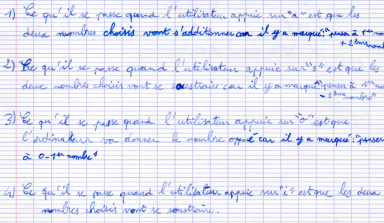 1) Ce qu'il se passe quand l'utilisateur appuie sur "a" est que les
deux nombres choisis vont s'additionner car il y a marqué: "penser à 1er nombre
+ 2ème nombre
2) Ce qu'il se passe quand l'utilisateur appuie sur "s" est que les
deux nombres choisis vont se soustraire car il y a marqué "penser à 1er nombre
- 2ème nombre"
3) Ce qu'il se passe quand l'utilisateur appuie sur "o" est que
l'ordinateur va donner le nombre opposé car il y a marqué: "penser
à 0-1er nombre"
4) Ce qu'il se passe quand l'utilisateur appuie sur "i" est que les deux
nombres choisis vont se soustraire.